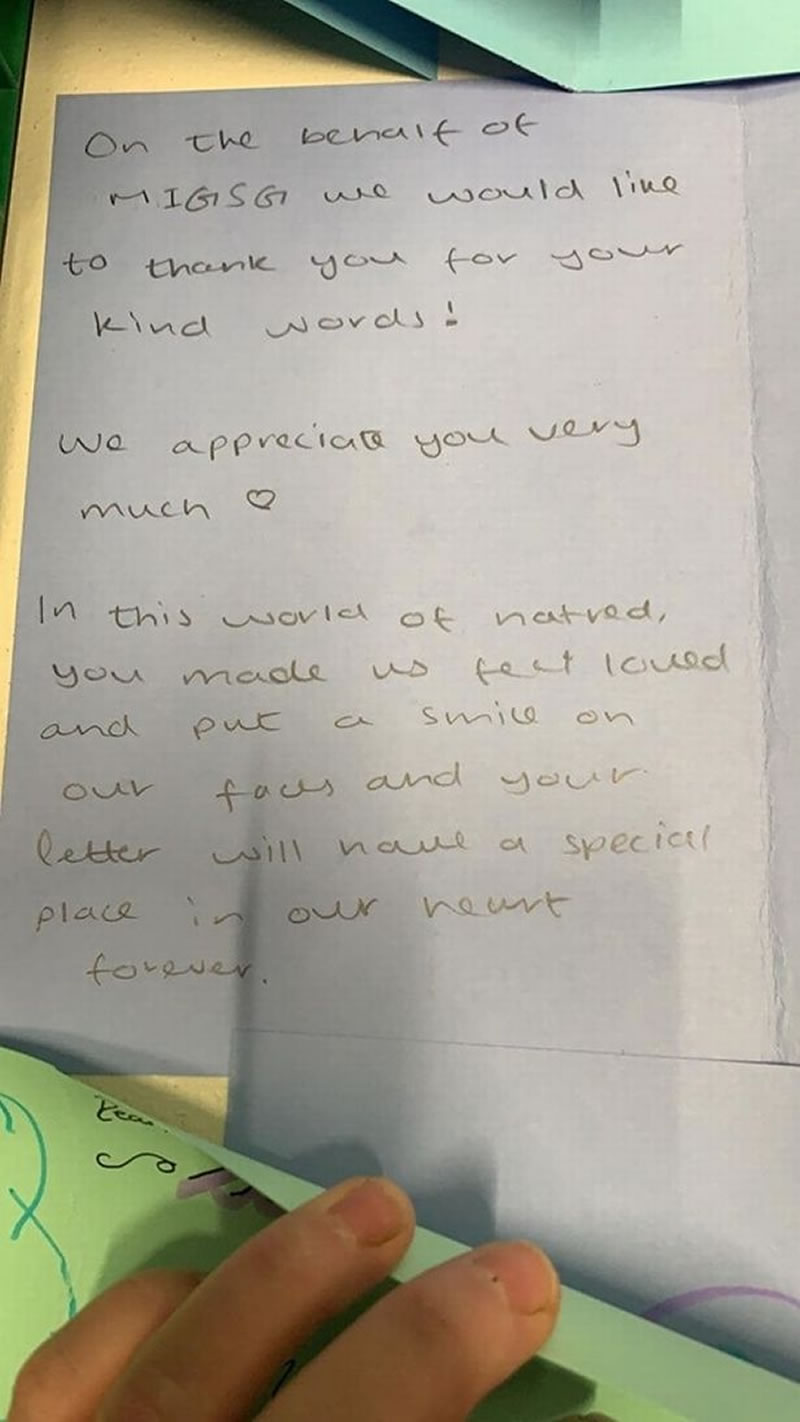 On the behalf of
MIGSG we would like
to thank you for your
kind words!
We appreciate you very
much ♡
In this world of hatred,
you made us feel loved
and put a smile on
our faces and your
letter will have a special
place in our heart
forever.